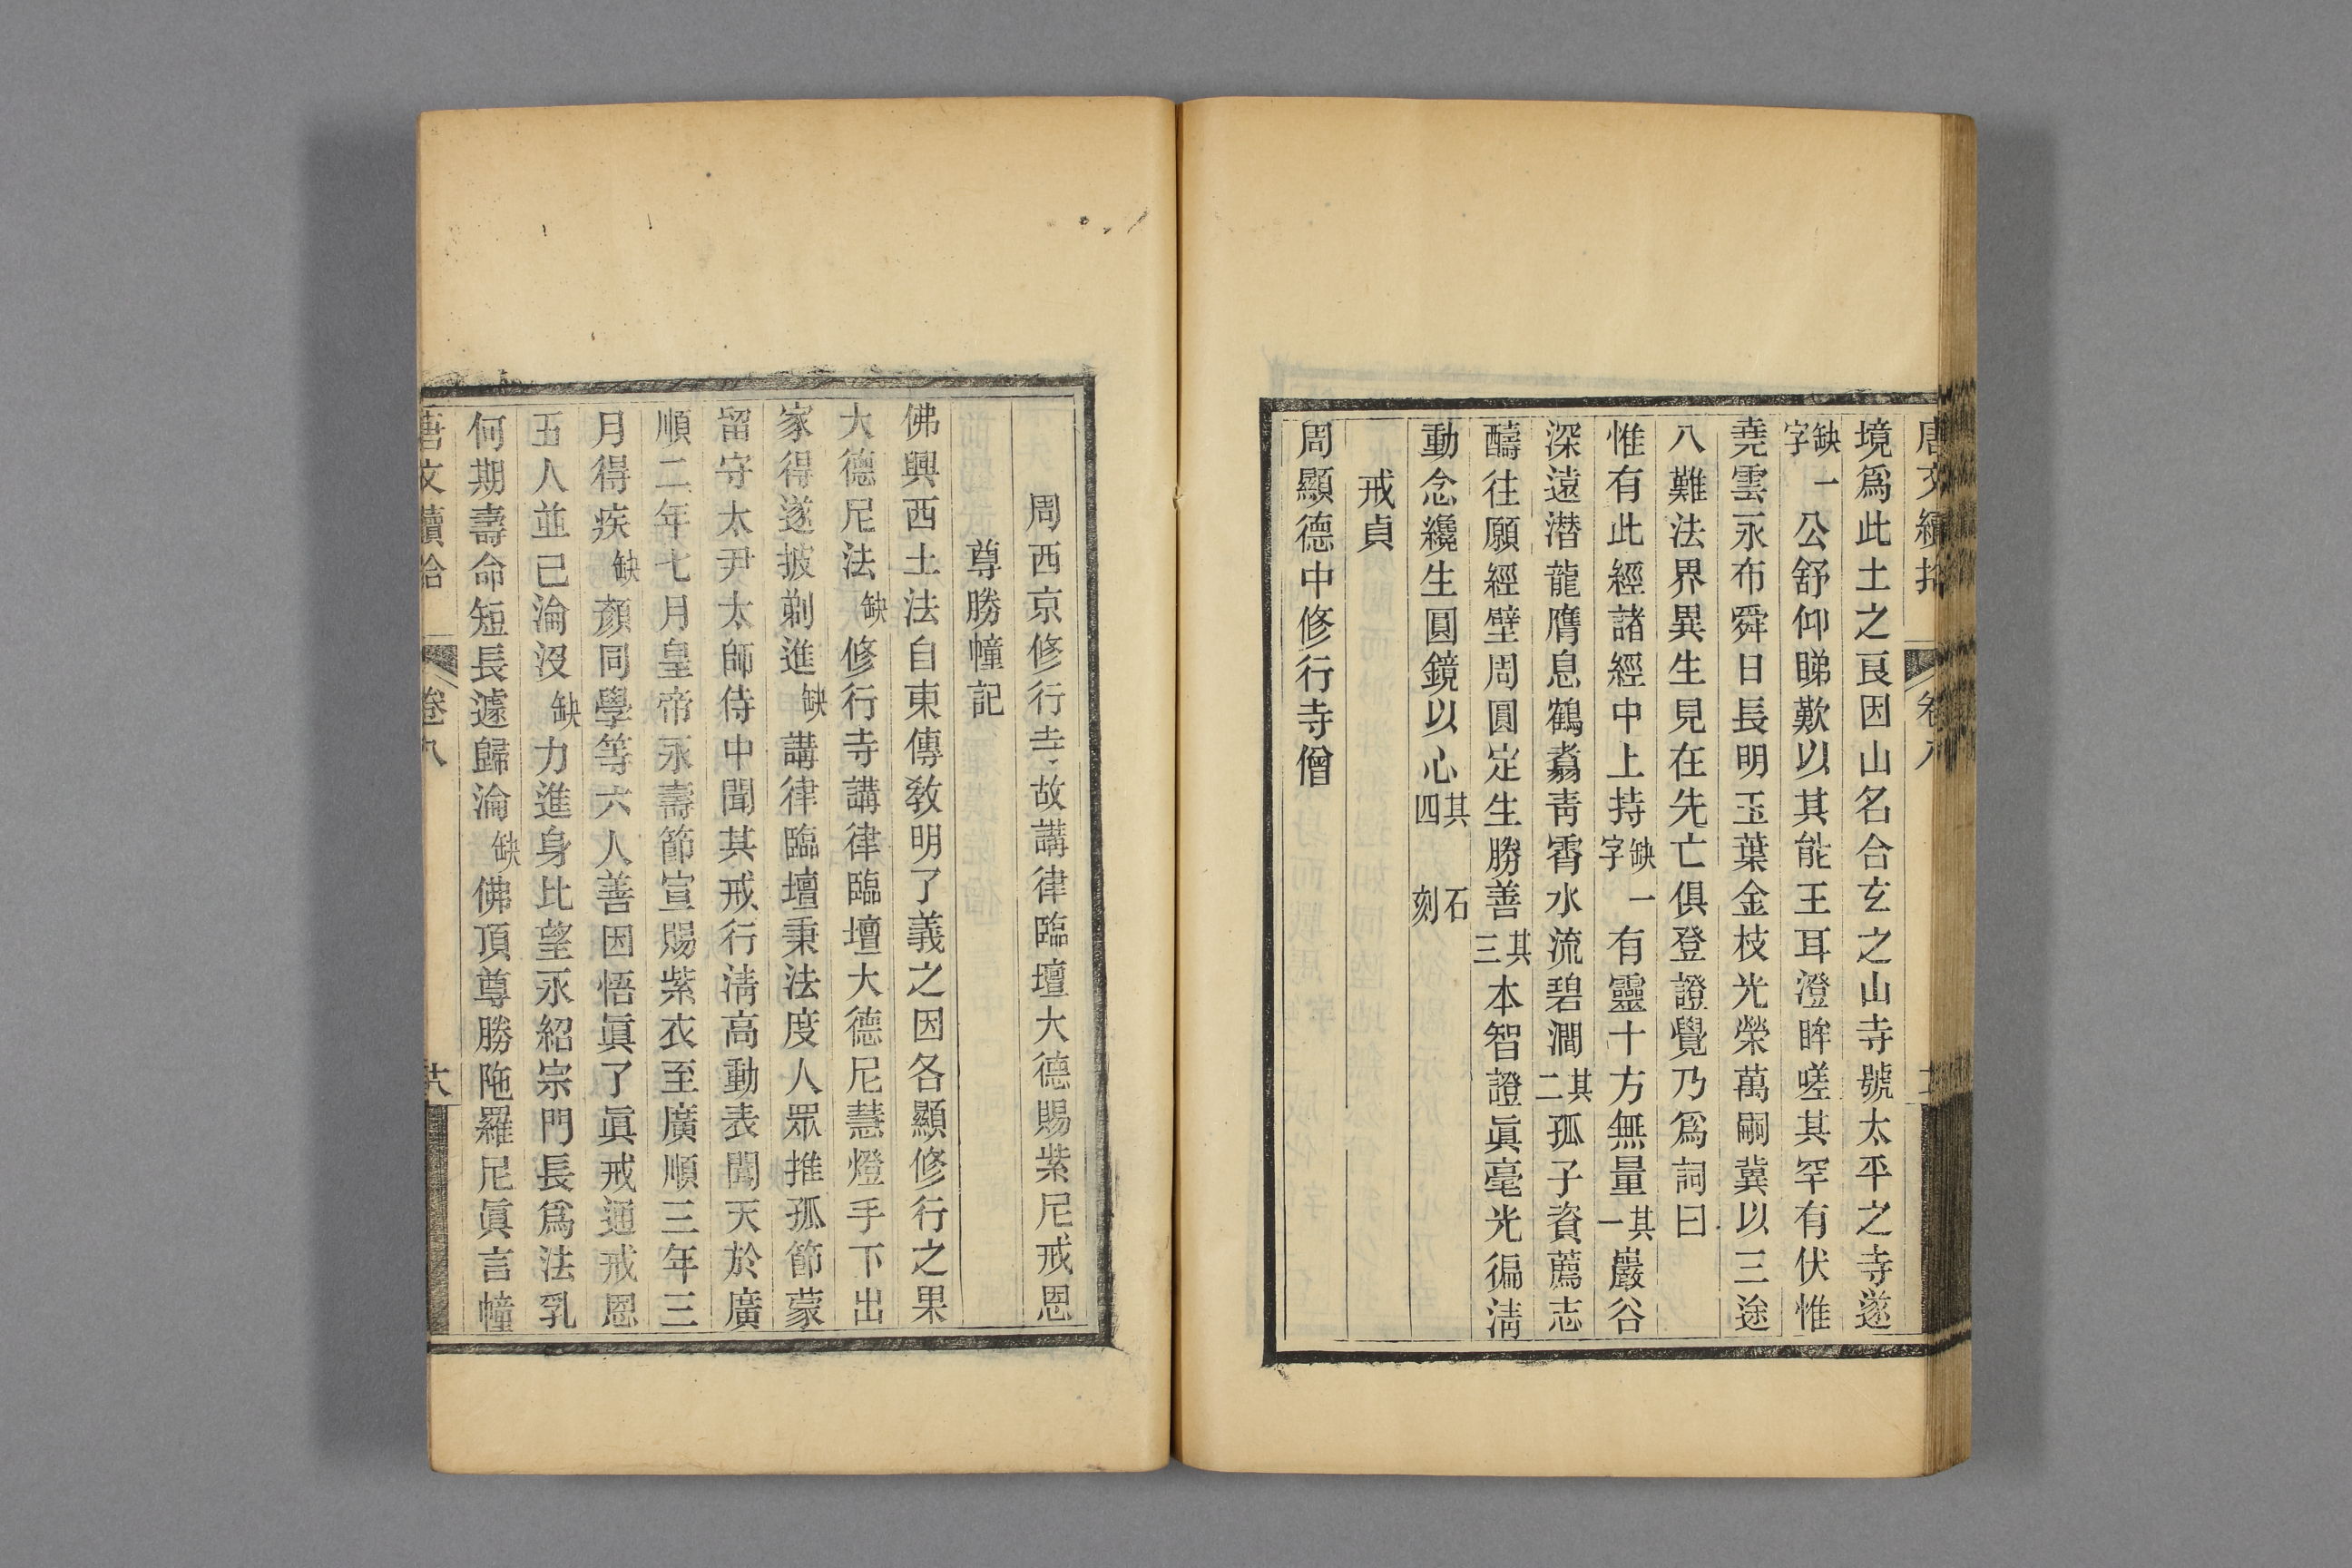 唐文續拾 卷八
境爲此土之良因山名合玄之山寺號太平之寺遂
缺一字公舒仰睇歎以其能王耳澄眸嗟其罕有伏惟
堯雲永布舜日長明玉葉金枝光榮萬嗣冀以三途
八難法界異生見在先亡俱登證覺乃爲詞曰
惟有此經諸經中上持缺一字有靈十方無量其一巖谷
深遠潛龍膺息鶴翥靑霄水流碧澗其二孤子資薦志
醻往願經壁周圓定生勝善其三本智證眞毫光徧淸
動念纔生圓鏡以心其四 石刻
戒貞
周顯德中修行寺僧
周西京修行寺故講律臨壇大德賜紫尼戒恩
尊勝幢記
佛興西土法自東傳敎明了義之因各顯修行之果
大德尼法缺修行寺講律臨壇大德尼慧燈手下出
家得遂披剃進缺講律臨壇秉法度人眾推孤節蒙
留守太尹太師侍中聞其戒行淸高動表聞天於廣
順二年七月皇帝永壽節宣賜紫衣至廣順三年三
月得疾缺顏同學等六人善因悟眞了眞戒通戒恩
五人並已淪沒缺力進身比望永紹宗門長爲法乳
何期壽命短長遽歸淪缺佛頂尊勝陁羅尼眞言幢
唐文續拾 卷八 十六